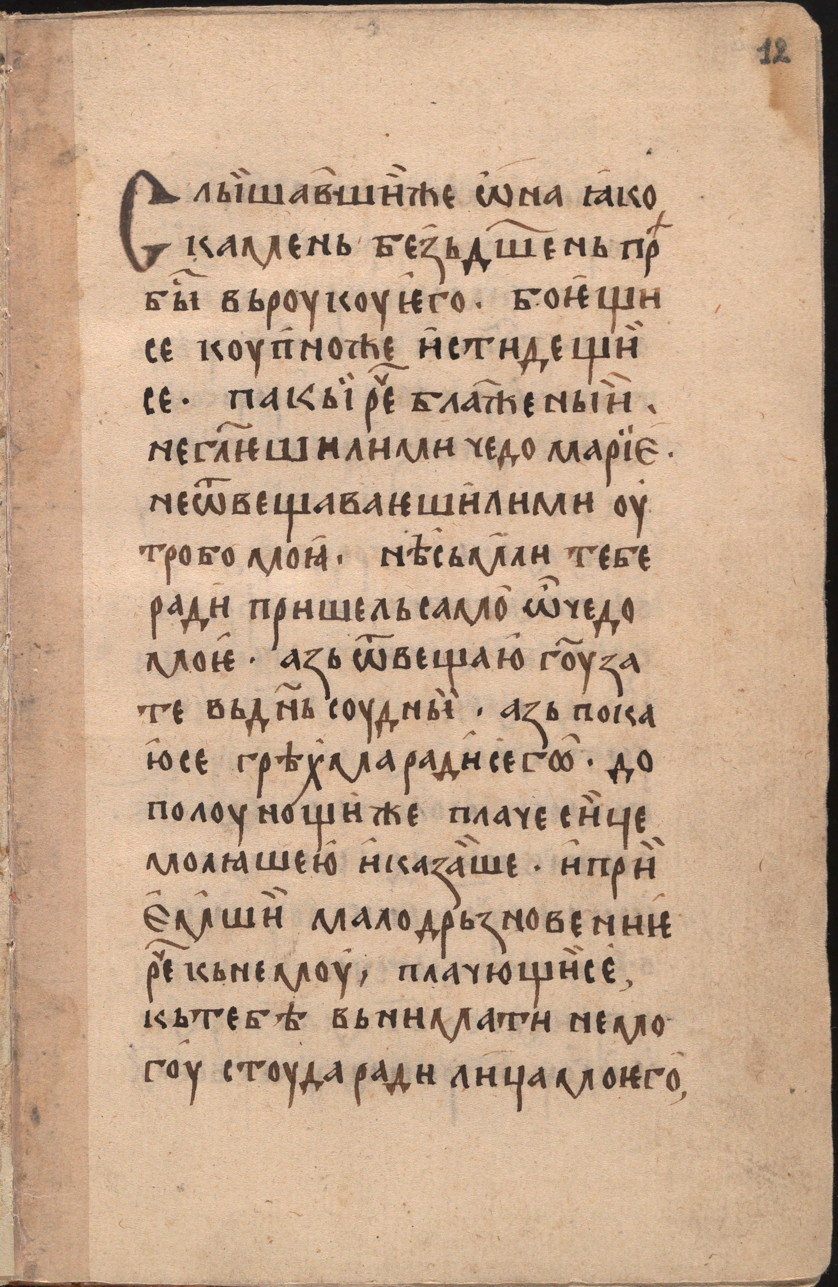 12
Слы̏шав̑шїи҆же ѡ҆на ꙗ҆ко
каменьь без̾ьдш҃ень прⷣ
бы̏ вьроукоу ѥ҆го. боѥ҆щи
се коуп̾ноже и҆стидещи҆
се. пакы̏ рⷱ҇е блаж҃еныи҆.
неглѥ҃шилими чедо марїе҆.
неѿвещаваѥшилими оу
тробо моꙗ҆. нѣ҆сьмли тебе
ради пришельсамо ѡ҆чедо
моѥ҆. азь ѿвещаю҆ гоу҃за
те вьдн҃ь соудны̏. азь пока
ю҆се грѣх̾марадисегѡ҆. до
полоунощиже плаче си҆це
молꙗшею҆ и҆каза҆ше. и҆при҆
е҆мши҆ мало дрьзновениѥ
рⷱ҇е кьнемоу, плачющи҆се,
кьтебѣ вьнимати немо
гоу стоуда ради ли҆ца моѥго,